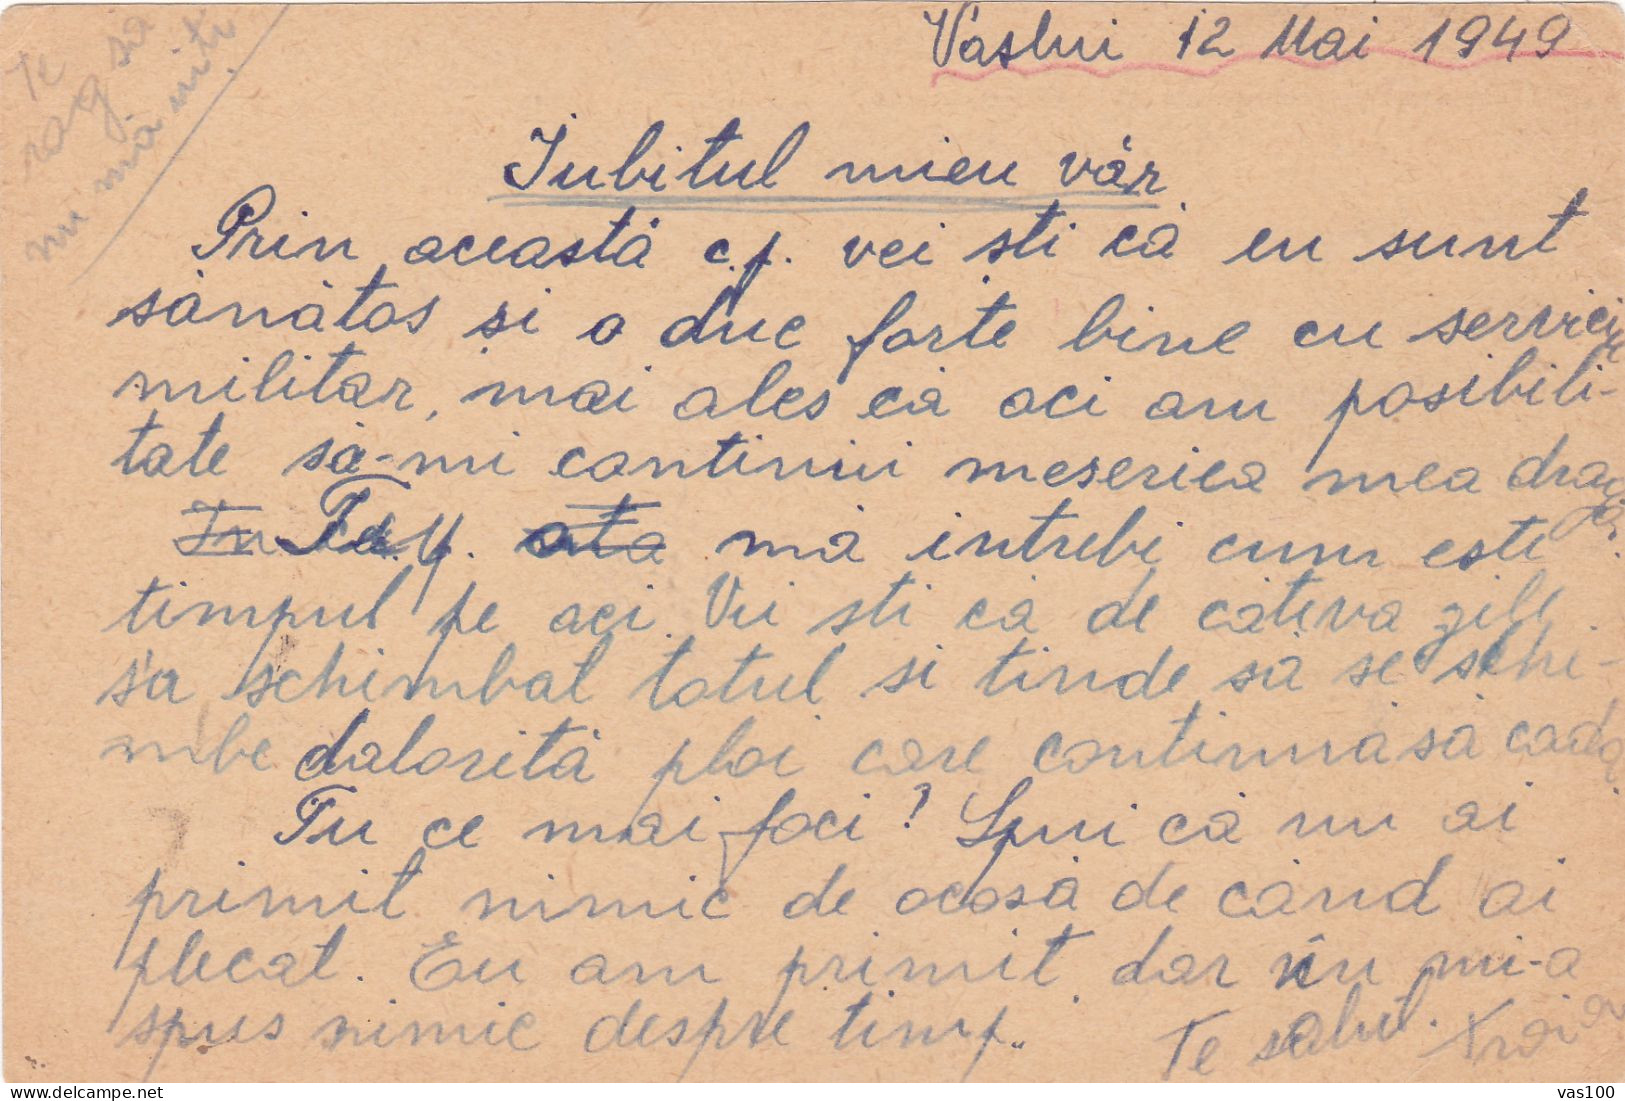 Vaslui 12 Mai 1949
Te
rog să
nu mă uiți
Iubitul mieu văr
Prin această c.p. vei sti că eu sunt
sănătos si o duc forte bine cu serviciu
militar, mai ales că aci am posibili-
tate să-mi continui meseriea mea dragă.
mă intrebi cum este
timpul pe aci. Vei sti că de câteva zile
s'a schimbat totul si tinde să se schi-
mbe dalorită ploi care continuă să cadă.
Tu ce mai faci? Spui că nu ai
primit nimic de acasă de când ai
plecat. Eu am primit dar nu mi-a
spus nimic despre timp.
Te salut.
vas100